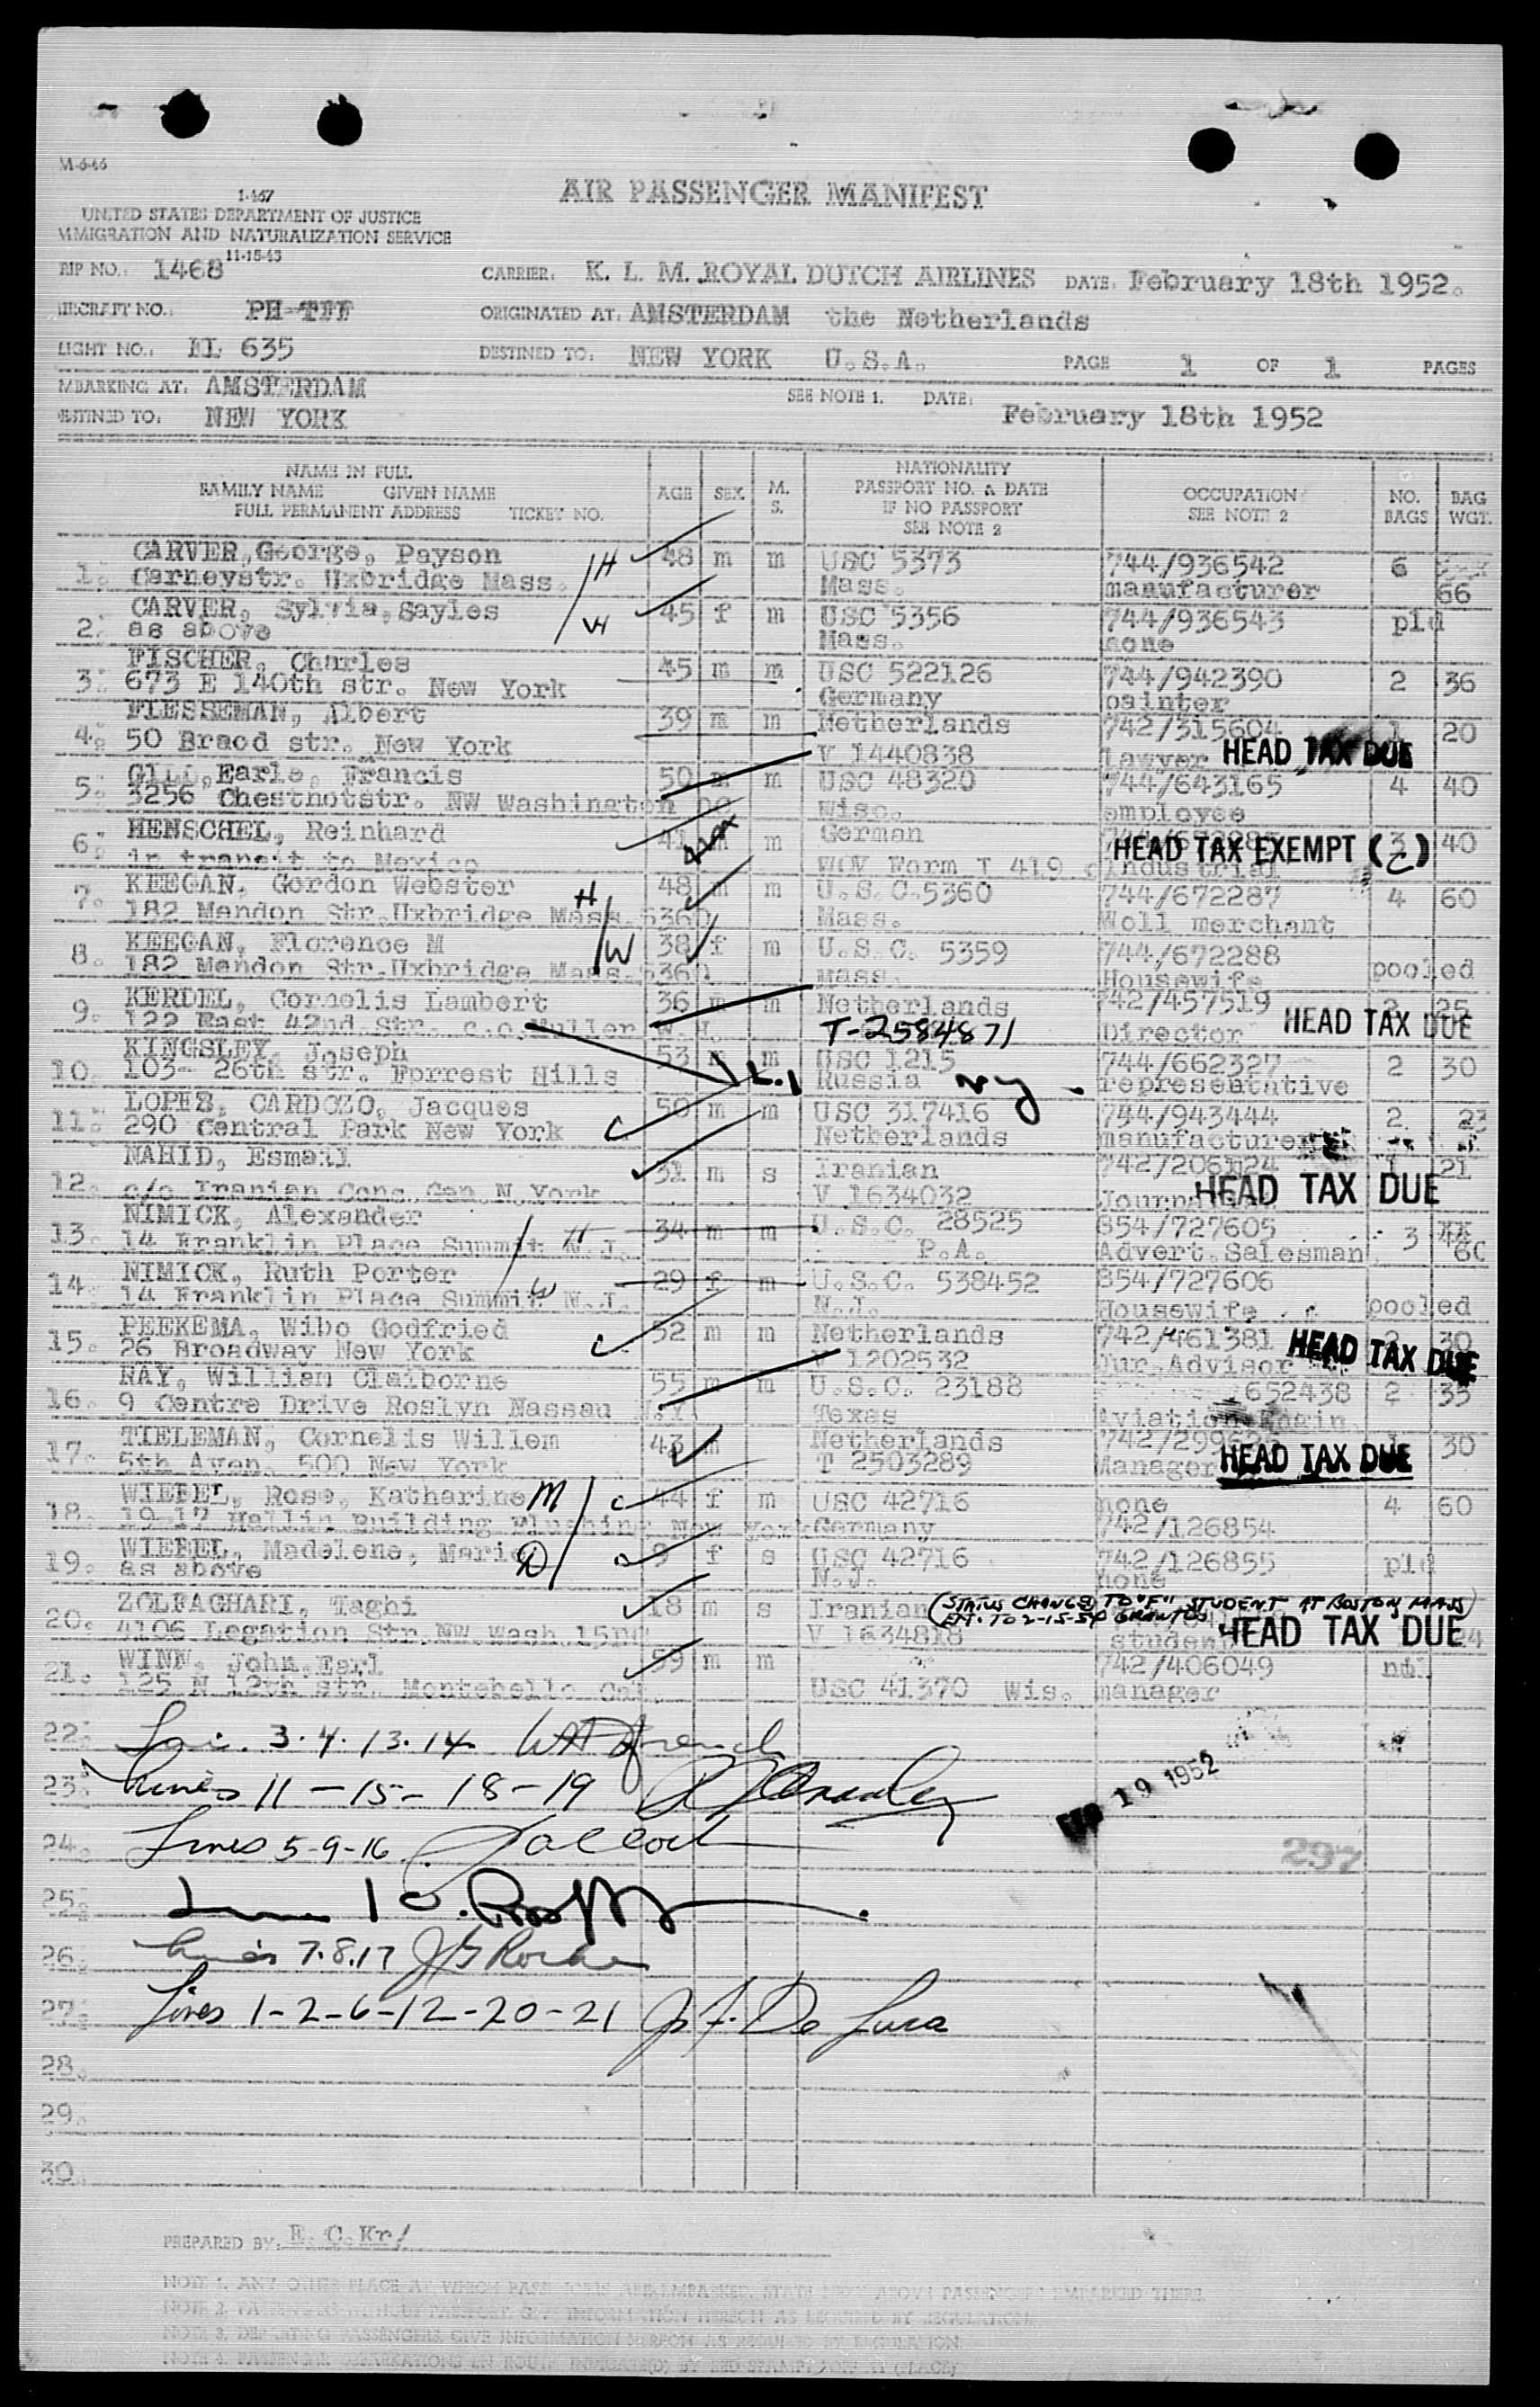 M-6-46
AIR PASSENGER MANIFEST
I-467
UNITED STATES DEPARTMENT OF JUSTICE
MMIGRATION AND NATURALIZATION SERVICE
11-15-43
RIP NO.: 1468 CARRIER: K. L. M. ROYAL DUTCH AIRLINES DATE: February 18th 1952.
IRCRAFT NO.: PH-TFF ORIGINATED AT: AMSTERDAM the Netherlands
LIGHT NO.: KL 635 DESTINED TO: NEW YORK U.S.A. PAGE 1 OF 1 PAGES
MBARKING AT: AMSTERDAM SEE NOTE 1. DATE: February 18th 1952
ESTINED TO: NEW YORK
NAME IN FULL
FAMILY NAME GIVEN NAME
FULL PERMANENT ADDRESS TICKET NO.
AGE SEX M. S.
NATIONALITY
PASSPORT NO. & DATE
IF NO PASSPORT
SEE NOTE 2
OCCUPATION
SEE NOTE 2
NO. BAGS
BAG WGT.
CARVER, George, Payson /H 48 m m USC 5373 744/936542 6
1. Carneystr. Uxbridge Mass. Mass. manufacturer 66
CARVER, Sylvia, Sayles /W 45 f m USC 5356 744/936543 pld
2. as above Mass. none
FISCHER, Charles 45 m m USC 522126 744/942390 2 36
3. 673 E 140th str. New York Germany painter
FIESSEMAN, Albert 39 m m Netherlands 742/315604 1 20
4. 50 Braod str. New York V 1440838 lawyer HEAD TAX DUE
GILL, Earle, Francis 50 m m USC 48320 744/643165 4 40
5. 3256 Chestnotstr. NW Washington DC Wisc. employee
HENSCHEL, Reinhard 41 m German HEAD TAX EXEMPT (C) 3 40
6. in transit to Mexico Form T 419 Industrial
KEEGAN, Gordon Webster H 48 m m U.S.C. 5360 744/672287 4 60
7. 182 Mendon Str. Uxbridge Mass. 5360 Mass. Woll merchant
KEEGAN, Florence M /W 38 f m U.S.C. 5359 744/672288 pooled
8. 182 Mendon Str. Uxbridge Mass. 5360 Mass. Housewife
KERDEL, Cornelis Lambert 36 m m Netherlands 742/457519 2 25
9. 122 East 42nd Str. c.o. Muller T-2584871 Director HEAD TAX DUE
KINGSLEY, Joseph 53 m m USC 1215 744/662327 2 30
10. 103- 26th str. Forrest Hills L.I Russia NY - representative
LOPES, CARDOZO, Jacques 50 m m USC 317416 744/943444 2 23
11. 290 Central Park New York C Netherlands manufacturer
NAHID, Esmail 31 m s Iranian 1 21
12. c/o Iranian Cons. Gen N. York V 1634032 HEAD TAX DUE
NIMICK, Alexander / H 34 m m U.S.C. 28525 854/727605 3 44
13. 14 Franklin Place Summit N.J. P.A. Advert. Salesman 60
NIMICK, Ruth Porter / W 29 f m U.S.C. 538452 854/727606 pooled
14. 14 Franklin Place Summit N.J. N.J. Housewife
PEEKEMA, Wibo Godfried 52 m m Netherlands 742/461381 2 30
15. 26 Broadway New York C V 1202532 Jur. Advisor HEAD TAX DUE
RAY, Willian Claiborne 55 m m U.S.C. 23188 652438 2 35
16. 9 Centre Drive Roslyn Nassau N.Y. Texas Aviation Engin.
TIELEMAN, Cornelis Willem 43 m Netherlands 30
17. 5th Aven. 500 New York T 2503289 Manager HEAD TAX DUE
WIEBEL, Rose, Katharine M / C 44 f m USC 42716 none 4 60
18. 19-17 Hallin Building Flushing New York Germany 742/126854
WIEBEL, Madelene, Marie D / 9 f s USC 42716 742/126855 pld
19. as above N.J. none
ZOLFAGHARI, Taghi 18 m s Iranian (STATUS CHANGED TO "F" STUDENT AT BOSTON MASS)
EXT. TO 2-15-54 GRANTED
20. 4106 Legation Str. NW Wash. 15 V 1634818 student HEAD TAX DUE
WINN, John, Earl 59 m m 742/406049
21. 125 N 12th str. Montebello Cal. USC 41370 Wis. manager
22. 3. 4. 13. 14
23. Lines 11 - 15 - 18 - 19 FEB 19 1952
24. Lines 5-9-16
297
25. 10.
26. Lines 7. 8. 17
27. Lines 1-2-6-12-20-21 J. F. De Luca
28.
29.
30.
PREPARED BY: E. C. Kr/
NOTE 1. ANY OTHER PLACE AT WHICH
NOTE 2.
NOTE 3. DEPARTING PASSENGERS GIVE INFORMATION HEREON AS REQUIRED BY REGULATION